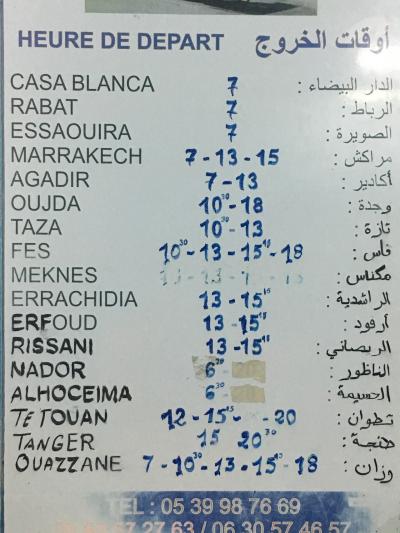 HEURE DE DEPART أوقات الخروج
CASA BLANCA 7 الدار البيضاء :
RABAT 7 الرباط :
ESSAOUIRA 7 الصويرة :
MARRAKECH 7-13-15 مراكش :
AGADIR 7-13 أكادير :
OUJDA 10³⁰-18 وجدة :
TAZA 10³⁰-13 تازة :
FES 10³⁰-13-15¹⁵-18 فاس :
MEKNES مكناس :
ERRACHIDIA 13-15¹⁵ الراشدية :
ERFOUD 13-15¹⁵ أرفود :
RISSANI 13-15¹⁵ الريصاني :
NADOR 6³⁰ الناظور :
ALHOCEIMA 6³⁰ الحسيمة :
TETOUAN 12-15¹⁵-20 تطوان :
TANGER 15 20³⁰ طنجة :
OUAZZANE 7-10³⁰-13-15¹⁵-18 وزان :
TEL : 05 39 98 76 69
27 63 / 06 30 57 46 57